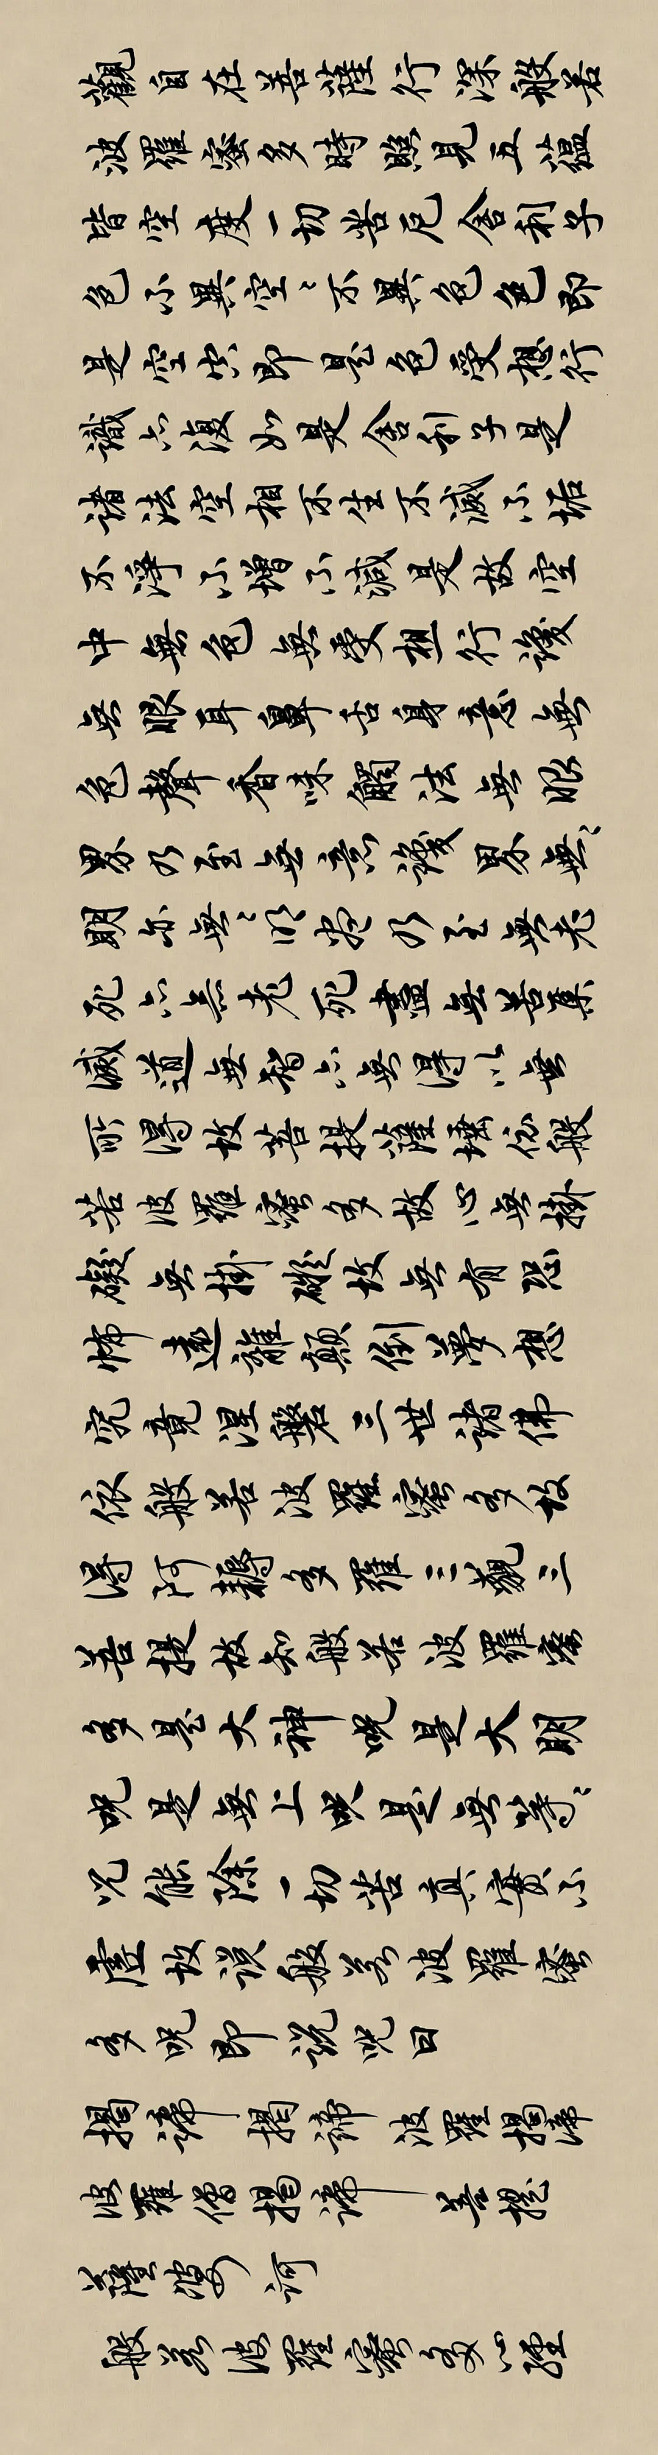 觀自在菩薩行深般若
波羅蜜多時照見五蘊
皆空度一切苦厄舍利子
色不異空〻不異色色即
是空空即是色受想行
識亦復如是舍利子是
諸法空相不生不滅不垢
不淨不增不減是故空
中無色無受想行識
無眼耳鼻舌身意無
色聲香味觸法無眼
界乃至無意識界無〻
明亦無〻明盡乃至無老
死亦無老死盡無苦集
滅道無智亦無得以無
所得故菩提薩埵依般
若波羅蜜多故心無掛
礙無掛礙故無有恐
怖遠離顛倒夢想
究竟涅槃三世諸佛
依般若波羅蜜多故
得阿耨多羅三藐三
菩提故知般若波羅蜜
多是大神咒是大明
咒是無上咒是無等〻
咒能除一切苦真實不
虛故說般若波羅蜜
多咒即說咒曰
揭諦揭諦波羅揭諦
波羅僧揭諦菩提
薩婆訶
般若波羅蜜多心經